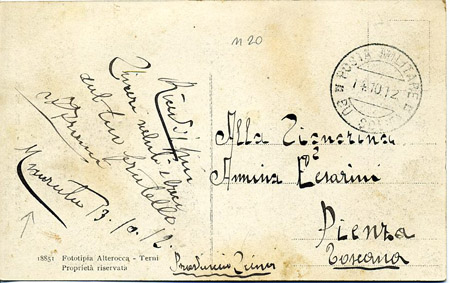 n 20
POSTA MILITARE
14.10.12
Ricevi i più
sinceri saluti e baci
dal tuo fratello
13.10.12
Alla Signorina
Annina Cesarini
Pienza
Toscana
18851 Fototipia Alterocca - Terni
Proprietà riservata